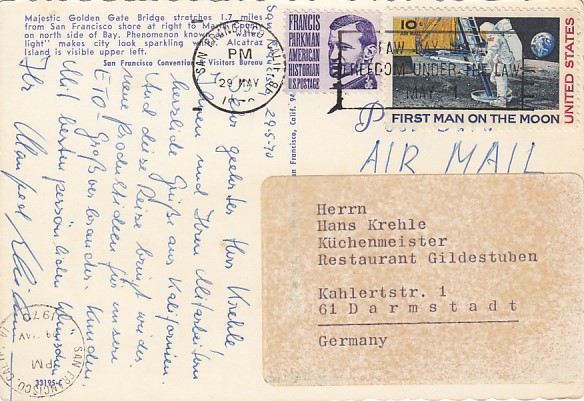 Majestic Golden Gate Bridge stretches 1.7 miles
from San Francisco shore at right to Marin County
on north side of Bay. Phenomenon known
light" makes city look sparkling Alcatraz
Island is visible upper left.
San Francisco Convention Visitors Bureau
San Francisco 29.5.70
Sehr geehrter Herr Krehle
Ihnen und Ihren Mitarbeitern
herzliche Grüße aus Kalifornien.
Auch diese Reise bringt wieder
neue Produktideen für unsere
ETO-Großverbraucher-Kunden.
Mit besten persönlichen Wünschen
Ihr Manfred
SAN FRANCISCO, CALIF.
PM
29 MAY
FRANCIS
PARKMAN
AMERICAN
HISTORIAN
3¢ U.S. POSTAGE
LAW DAY USA
FREEDOM UNDER THE LAW
MAY 1
10¢
UNITED STATES
FIRST MAN ON THE MOON
San Francisco, Calif. 94
AIR MAIL
Herrn
Hans Krehle
Küchenmeister
Restaurant Gildestuben
Kahlertstr. 1
61 Darmstadt
Germany
SAN FRANCISCO, CALIF.
PM
29 MAY
1970
33195-C